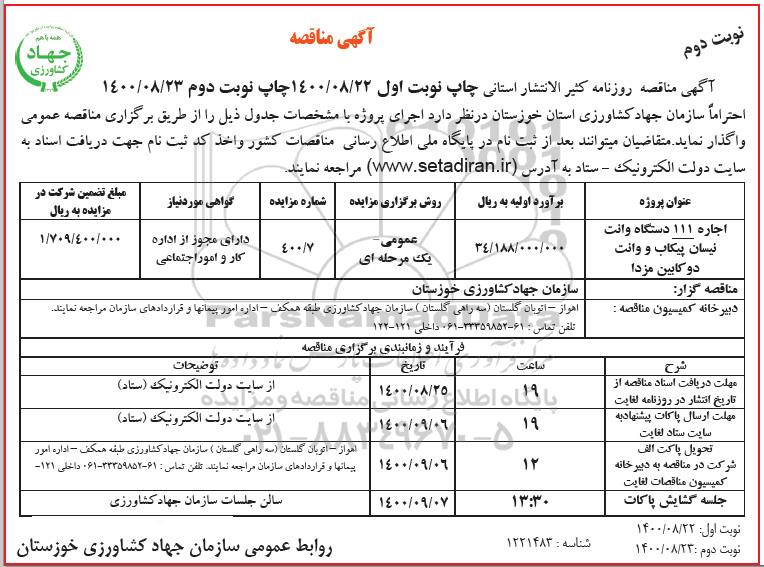 نوبت دوم
آگهی مناقصه
همه با هم
جهاد
کشاورزی
آگهی مناقصه روزنامه کثیر الانتشار استانی چاپ نوبت اول ۱۴۰۰/۰۸/۲۲چاپ نوبت دوم ۱۴۰۰/۰۸/۲۳
احتراماً سازمان جهادکشاورزی استان خوزستان درنظر دارد اجرای پروژه با مشخصات جدول ذیل را از طریق برگزاری مناقصه عمومی
واگذار نماید.متقاضیان میتوانند بعد از ثبت نام در پایگاه ملی اطلاع رسانی مناقصات کشور واخذ کد ثبت نام جهت دریافت اسناد به
سایت دولت الکترونیک – ستاد به آدرس (www.setadiran.ir) مراجعه نمایند.
عنوان پروژه
برآورد اولیه به ریال
روش برگزاری مزایده
شماره مزایده
گواهی موردنیاز
مبلغ تضمین شرکت در
مزایده به ریال
اجاره ۱۱۱ دستگاه وانت
نیسان پیکاب و وانت
دوکابین مزدا
۳۴/۱۸۸/۰۰۰/۰۰۰
عمومی-
یک مرحله ای
۴۰۰/۷
دارای مجوز از اداره
کار و اموراجتماعی
۱/۷۰۹/۴۰۰/۰۰۰
مناقصه گزار:
سازمان جهادکشاورزی خوزستان
دبیرخانه کمیسیون مناقصه :
اهواز – اتوبان گلستان (سه راهی گلستان ) سازمان جهادکشاورزی طبقه همکف – اداره امور پیمانها و قراردادهای سازمان مراجعه نمایند.
تلفن تماس : ۶۱-۳۳۳۵۹۸۵۲-۰۶۱ داخلی ۱۲۱-۱۲۲
فرآیند و زمانبندی برگزاری مناقصه
شرح
ساعت
تاریخ
توضیحات
مهلت دریافت اسناد مناقصه از
تاریخ انتشار در روزنامه لغایت
۱۹
۱۴۰۰/۰۸/۲۵
از سایت دولت الکترونیک (ستاد)
مهلت ارسال پاکات پیشنهادبه
سایت ستاد لغایت
۱۹
۱۴۰۰/۰۹/۰۶
از سایت دولت الکترونیک (ستاد)
تحویل پاکت الف
شرکت در مناقصه به دبیرخانه
کمیسیون مناقصات لغایت
۱۲
۱۴۰۰/۰۹/۰۶
اهواز – اتوبان گلستان (سه راهی گلستان ) سازمان جهادکشاورزی طبقه همکف – اداره امور
پیمانها و قراردادهای سازمان مراجعه نمایند. تلفن تماس : ۶۱-۳۳۳۵۹۸۵۲-۰۶۱ داخلی ۱۲۱-
جلسه گشایش پاکات
۱۳:۳۰
۱۴۰۰/۰۹/۰۷
سالن جلسات سازمان جهادکشاورزی
ParsNamadData
پایگاه اطلاع رسانی مناقصه و مزایده
۰۲۱-۸۸۳۴۹۶۷۰-۵
نوبت اول: ۱۴۰۰/۰۸/۲۲
نوبت دوم :۱۴۰۰/۰۸/۲۳
شناسه : ۱۲۲۱۴۸۳
روابط عمومی سازمان جهاد کشاورزی خوزستان